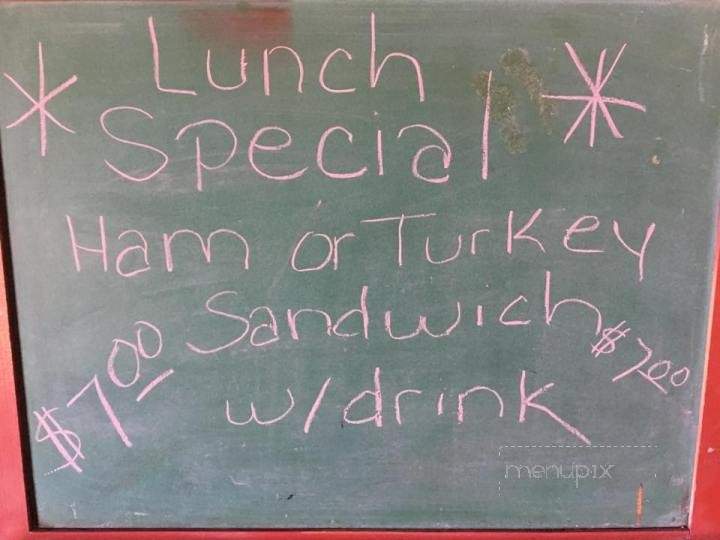 * Lunch *
Special
Ham or Turkey
Sandwich
$7.00 w/drink $7.00
menupix